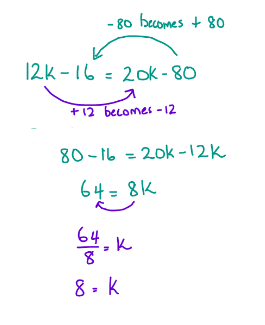 -80 becomes + 80
12k - 16 = 20k - 80
+12 becomes -12
80 - 16 = 20k - 12k
64 = 8k
64/8 = k
8 = k